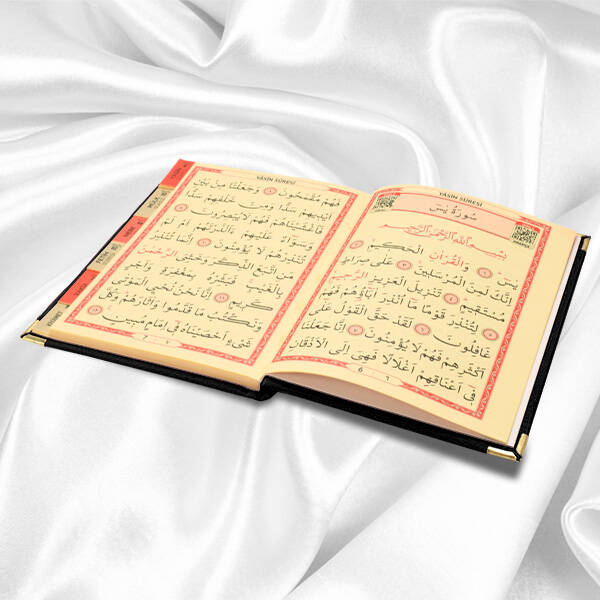 YÂSÎN SÛRESİ
سُورَةُ يٰسٓ
بِسْمِ اللّٰهِ الرَّحْمٰنِ الرَّحٖيمِ
يٰسٓ ﴿١﴾ وَالْقُرْاٰنِ الْحَكٖيمِ ﴿٢﴾
اِنَّكَ لَمِنَ الْمُرْسَلٖينَ ﴿٣﴾ عَلٰى صِرَاطٍ
مُسْتَقٖيمٍ ﴿٤﴾ تَنْزٖيلَ الْعَزٖيزِ الرَّحٖيمِ ﴿٥﴾
لِتُنْذِرَ قَوْمًا مَٓا اُنْذِرَ اٰبَٓاؤُ۬هُمْ فَهُمْ
غَافِلُونَ ﴿٦﴾ لَقَدْ حَقَّ الْقَوْلُ عَلٰٓى
اَكْثَرِهِمْ فَهُمْ لَا يُؤْمِنُونَ ﴿٧﴾ اِنَّا جَعَلْنَا
فٖٓي اَعْنَاقِهِمْ اَغْلَالًا فَهِيَ اِلَى الْاَذْقَانِ
6 ٦
YÂSÎN SÛRESİ
فَهُمْ مُقْمَحُونَ ﴿٨﴾ وَجَعَلْنَا مِنْ بَيْنِ
اَيْدٖيهِمْ سَدًّا وَمِنْ خَلْفِهِمْ سَدًّا
فَاَغْشَيْنَاهُمْ فَهُمْ لَا يُبْصِرُونَ ﴿٩﴾
وَسَوَٓاءٌ عَلَيْهِمْ ءَاَنْذَرْتَهُمْ اَمْ لَمْ
تُنْذِرْهُمْ لَا يُؤْمِنُونَ ﴿١٠﴾ اِنَّمَا تُنْذِرُ
مَنِ اتَّبَعَ الذِّكْرَ وَخَشِيَ الرَّحْمٰنَ
بِالْغَيْبِ فَبَشِّرْهُ بِمَغْفِرَةٍ وَاَجْرٍ
كَرٖيمٍ ﴿١١﴾ اِنَّا نَحْنُ نُحْيِ الْمَوْتٰى
وَنَكْتُبُ مَا قَدَّمُوا وَاٰثَارَهُمْ وَكُلَّ
شَيْءٍ اَحْصَيْنَاهُ فٖٓي اِمَامٍ مُبٖينٍ ﴿١٢﴾
7 ٧